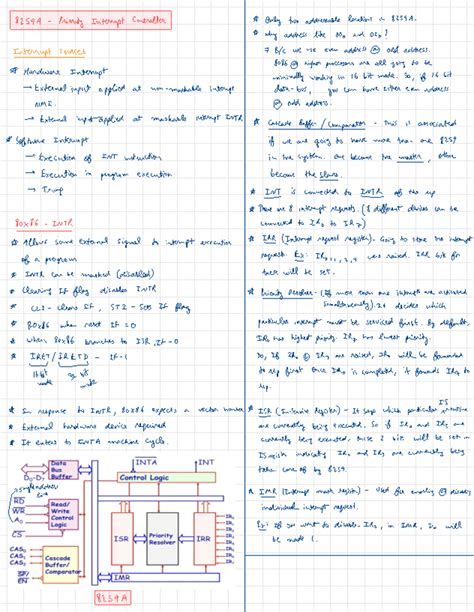 8259A - Priority Interrupt Controller
Interrupt Sources
* Hardware Interrupt
→ External input applied at non-maskable interrupt
NMI.
→ External input applied at maskable interrupt INTR
* Software Interrupt
→ Execution of INT instruction
→ Execution in program execution
→ Trap
80x86 - INTR
* Allows some external signal to interrupt execution
of a program
* INTR can be masked (disabled)
* Clearing IF flag disables INTR
CLI - Clears IF, STI - Sets IF flag
* 80x86 when reset IF = 0
* When 80x86 branches to ISR, IF = 0
* IRET / IRETD - IF = 1
16 bit mode
32 bit mode
* In response to INTR, 80x86 expects a vector number
* External hardware device required
* It enters to INTA machine cycle.
INTA INT
D0-D7
Data Bus Buffer
Control Logic
RD
WR
A0
CS
Read/Write Control Logic
CAS0
CAS1
CAS2
SP/EN
Cascade Buffer/Comparator
ISR
Priority Resolver
IRR
IMR
IR0
IR1
8259A
* Only two addressable locations in 8259A.
* why address like 0x0 and 0x2?
→ B/c we use even address @ odd address.
8086 @ higher processors are all going to be
minimally working in 16 bit mode. So, if 16 bit
data-bus, you can have either even address
@ odd address.
* Cascade Buffer / Comparator - This is associated
if we are going to have more than one 8259
in the system. One become the master, other
become the slave.
* INT is connected to INTR of the up
* There are 8 interrupt requests. (8 different devices can be
connected to IR0 to IR7)
* IRR (Interrupt request register) - Going to store the interrupt
request. Ex: were raised. IRR bit for
these will be set.
* Priority Resolver - (If more than one interrupt are activated
simultaneously). It decides which
particular interrupt must be serviced first. By default,
IR0 has highest priority. IR7 has lowest priority.
So, if IR0 @ IR1 are raised, IR0 will be forwarded
to up first. Once IR0 is completed, it forwards IR1 to
up.
* ISR (In-service Register) - It says which particular
are currently being executed. So if IR0 and IR3 are
currently being executed, those 2 bit will be set in
IS register indicating IR0 and IR3 are currently being
taken care of by 8259.
* IMR (Interrupt mask register) - Used for enabling @ disabling
individual interrupt request.
Ex: If you want to disable IR2, in IMR, it will
be made 1.